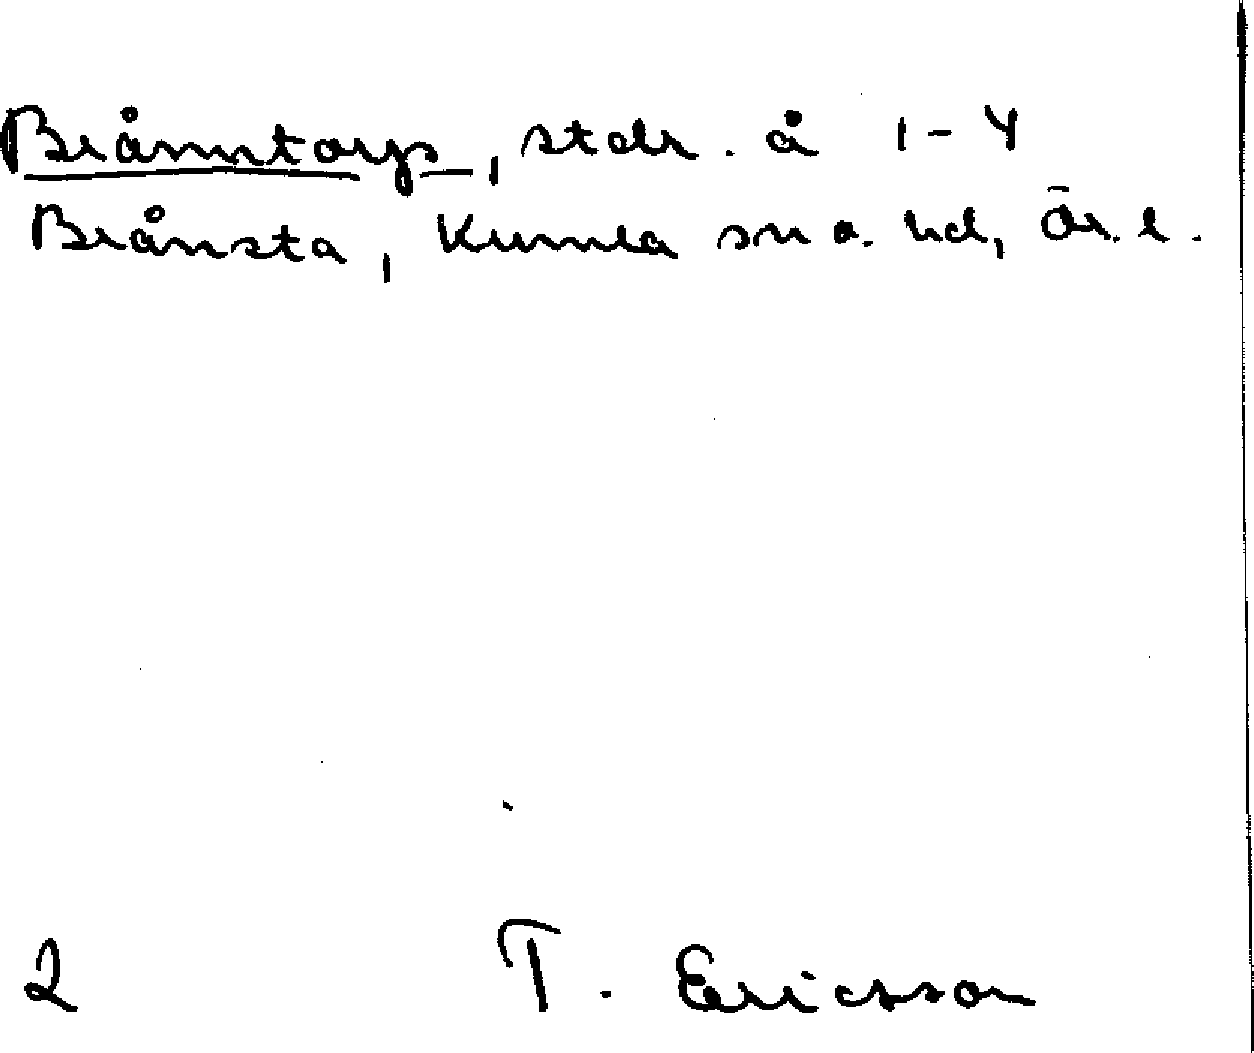 Brånntorp, stdr. å 1-4
Brånsta, Kumla sn o. hd, Ör. l.
2 T. Ericsson